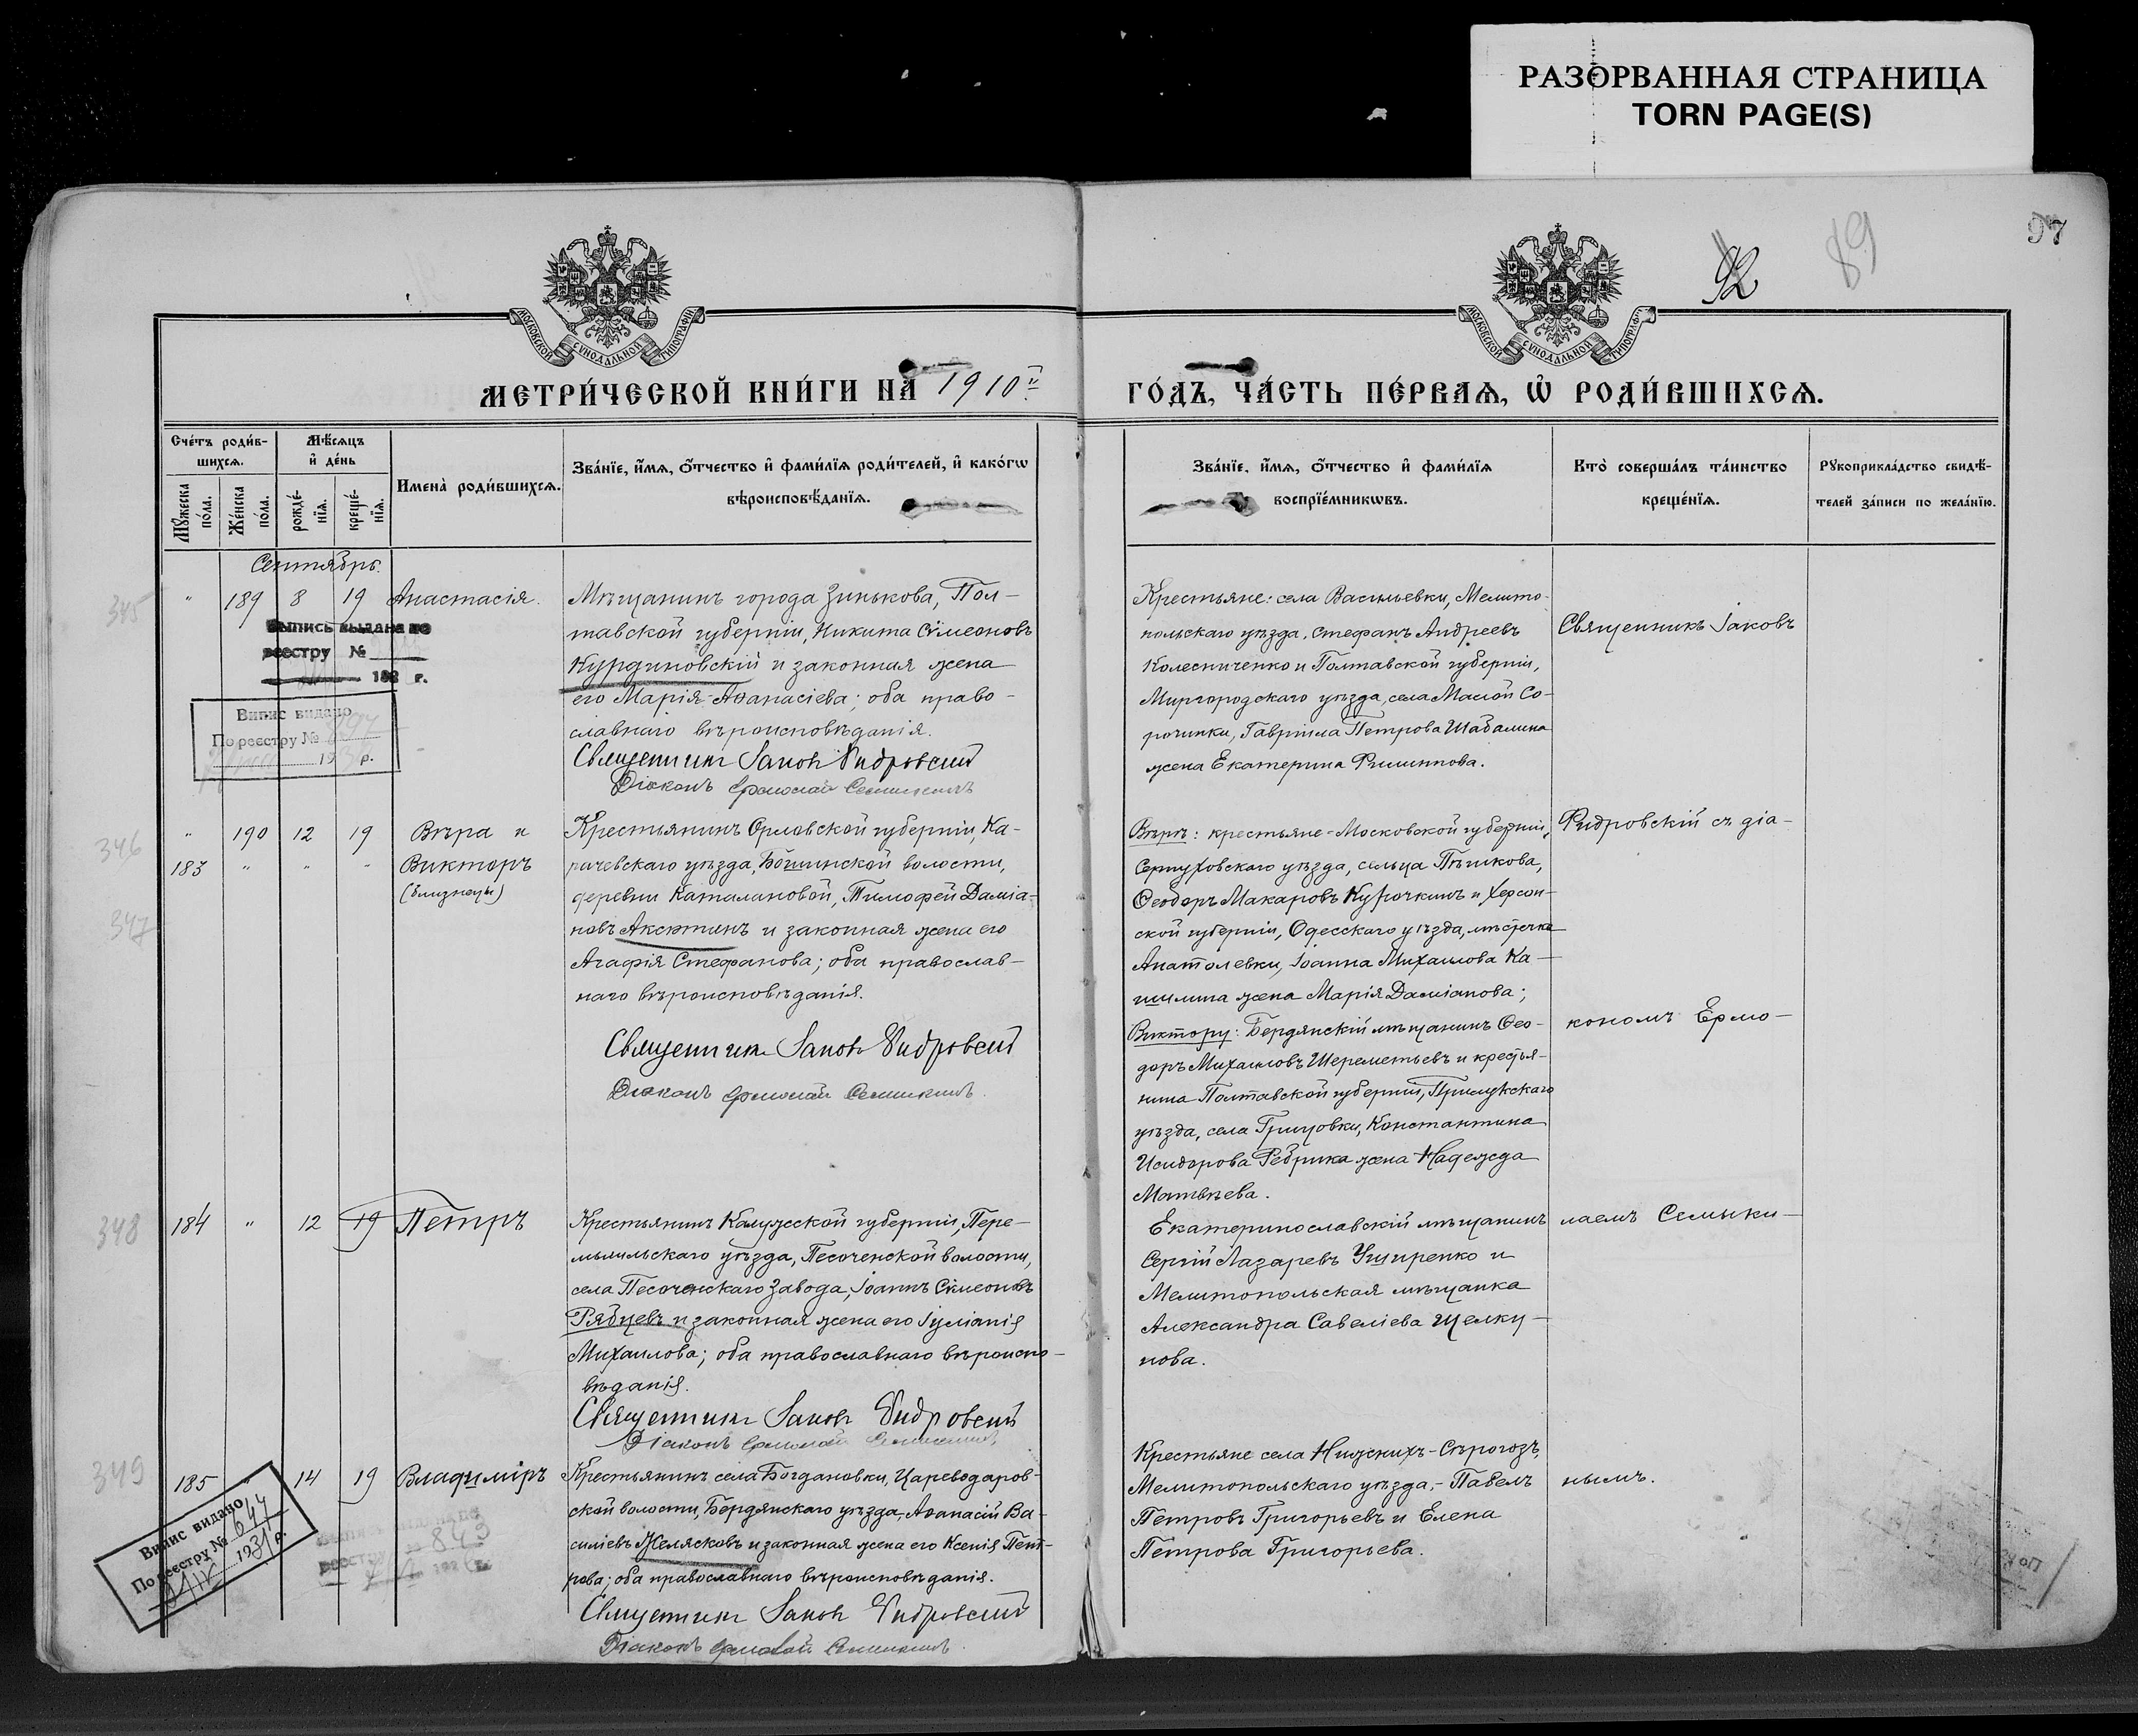 РАЗОРВАННАЯ СТРАНИЦА
TORN PAGE(S)
97
92
89
МОСКОВСКОЙ СѴНОДАЛЬНОЙ ТИПОГРАФІИ
МОСКОВСКОЙ СѴНОДАЛЬНОЙ ТИПОГРАФІИ
МЕТРИ́ЧЕСКОЙ КНИ́ГИ НА 1910й
ГО́ДЪ, ЧА́СТЬ ПЕ́РВАѦ, Ѡ РОДИ́ВШИХСѦ.
Сче́тъ роди́в-
шихсѧ.
Мѣ́сѧцъ
и҆ де́нь
Мꙋ́жеска по́ла.
Же́нска по́ла.
рожде́-
нїѧ.
креще́-
нїѧ.
Имена̀ роди́вшихсѧ.
Зва́нїе, и҆́мѧ, ѻ҆́тчество и҆ фами́лїѧ роди́телей, и҆ како́гѡ
вѣроисповѣ́данїѧ.
Зва́нїе, и҆́мѧ, ѻ҆́тчество и҆ фами́лїѧ
воспрїе́мникѡвъ.
Кто̀ соверша́лъ та́инство
креще́нїѧ.
Рꙋкоприкла́дство свидѣ́-
телей за́писи по жела́нїю.
Сентябрь.
345
" 189 8 19 Анастасія.
Мѣщанинъ города Зинькова, Пол-
тавской губерніи, Никита Сѵмеоновъ
Курдиновскій и законная жена
его Марія Аѳанасіева; оба право-
славнаго вѣроисповѣданія.
Священникъ Іаковъ Фидровскій
Діаконъ Ермолай Семыкинъ
Крестьяне: села Васильевки, Мелито-
польскаго уѣзда, Стефанъ Андреевъ
Колесниченко и Полтавской губерніи,
Миргородскаго уѣзда, села Малой Со-
рочинки, Гавріила Петрова Шабалина
жена Екатерина Филиппова.
Священникъ Іаковъ
Выпись выдана по
реестру №
192 г.
Випис видано
По реєстру №
193 р.
346
" 190 12 19 Вѣра и
183 " " " Викторъ
(близнецы)
347
Крестьянинъ Орловской губерніи, Ка-
рачевскаго уѣзда, Бошинской волости,
деревни Каталановой, Тимофей Даміа-
новъ Аксютинъ и законная жена его
Агафія Стефанова; оба православ-
наго вѣроисповѣданія.
Священникъ Іаковъ Фидровскій
Діаконъ Ермолай Семыкинъ.
Вѣрѣ: крестьяне - Московской губерніи,
Серпуховскаго уѣзда, сельца Пѣшкова,
Ѳеодоръ Макаровъ Курочкинъ и Херсон-
ской губерніи, Одесскаго уѣзда, мѣстечка
Анатолевки, Іоанна Михаилова Ка-
шилина жена Марія Даміанова;
Виктору: Бердянскій мѣщанинъ Ѳео-
доръ Михаиловъ Шереметьевъ и крестья-
нина Полтавской губерніи, Прилукскаго
уѣзда, села Грицовки, Константина
Исидорова Ребрика жена Надежда
Матвѣева.
Фидровскій съ діа-
кономъ Ермо-
348
184 " 12 19 Петръ
Крестьянинъ Калужской губерніи, Пере-
мышльскаго уѣзда, Песоченской волости,
села Песоченскаго Завода, Іоаннъ Сѵмеоновъ
Рябцевъ и законная жена его Іуліанія
Михаилова; оба православнаго вѣроиспо-
вѣданія.
Священникъ Іаковъ Фидровскій
Діаконъ Ермолай Семыкинъ
Екатеринославскій мѣщанинъ
Сергій Лазаревъ Ушпренко и
Мелитопольская мѣщанка
Александра Савеліева Щелку-
нова.
лаемъ Семыки-
349
185 " 14 19 Владиміръ
Крестьянинъ села Богдановки, Цареводаров-
ской волости, Бердянскаго уѣзда, Аѳанасій Ва-
силіевъ Желясковъ и законная жена его Ксенія Пет-
рова; оба православнаго вѣроисповѣданія.
Священникъ Іаковъ Фидровскій
Діаконъ Ермолай Семыкинъ.
Крестьяне села Нижнихъ-Сѣрогозъ,
Мелитопольскаго уѣзда, - Павелъ
Петровъ Григорьевъ и Елена
Петрова Григорьева.
нымъ.
Випис видано
По реєстру № 644
1931 р.
реестру 843
192 г.